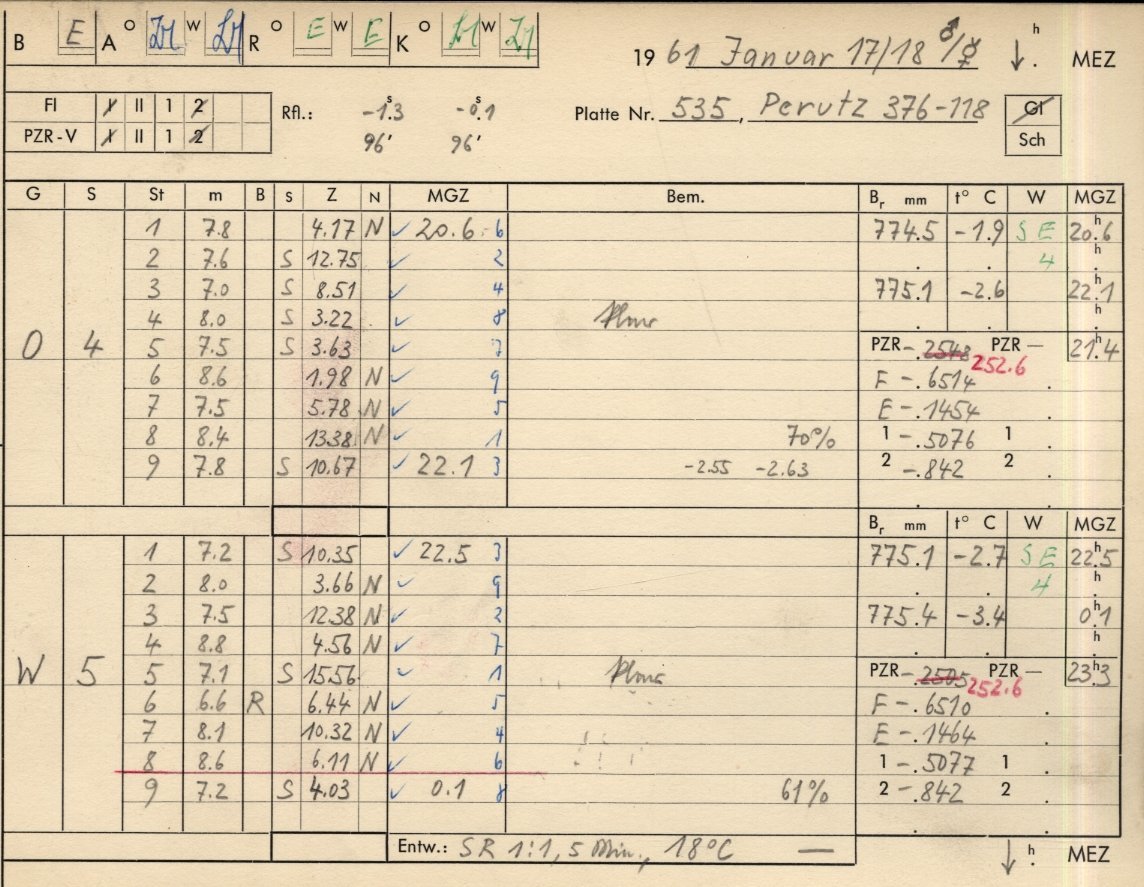 B E A O W R O E W E K O W
1961 Januar 17/18 ♂/☿ ↓ h . MEZ
FI I II 1 2 Rfl.: -1.ˢ3 -0.ˢ1 Platte Nr. 535, Perutz 376-118 Gl
PZR-V I II 1 2 96' 96' Sch
G S St m B S Z N MGZ Bem. Br mm t° C W MGZ
1 7.8 4.17 N ✓ 20.6 6 774.5 -1.9 SE 20.ʰ6
2 7.6 S 12.75 ✓ 2 . . 4 h .
3 7.0 S 8.51 ✓ 4 775.1 -2.6 22.ʰ1
4 8.0 S 3.22 ✓ 8 . . h .
O 4 5 7.5 S 3.63 ✓ 7 PZR -.2548 252.6 PZR — 21.ʰ4
6 8.6 1.98 N ✓ 9 F -.6514 .
7 7.5 5.78 N ✓ 5 E -.1454 .
8 8.4 13.38 N ✓ 1 70% 1 -.5076 1 .
9 7.8 S 10.67 ✓ 22.1 3 -2.55 -2.63 2 -.842 2 .
Br mm t° C W MGZ
1 7.2 S 10.35 ✓ 22.5 3 775.1 -2.7 SE 22.ʰ5
2 8.0 3.66 N ✓ 9 . . 4 h .
3 7.5 12.38 N ✓ 2 775.4 -3.4 0.ʰ1
4 8.8 4.56 N ✓ 7 . . h .
W 5 5 7.1 S 15.56 ✓ 1 PZR -.2505 252.6 PZR — 23.ʰ3
6 6.6 R 6.44 N ✓ 5 F -.6510 .
7 8.1 10.32 N ✓ 4 E -.1464 .
8 8.6 6.11 N ✓ 6 1 -.5077 1 .
9 7.2 S 4.03 ✓ 0.1 8 61% 2 -.842 2 .
Entw.: SR 1:1, 5 Min., 18°C — ↓ h . MEZ